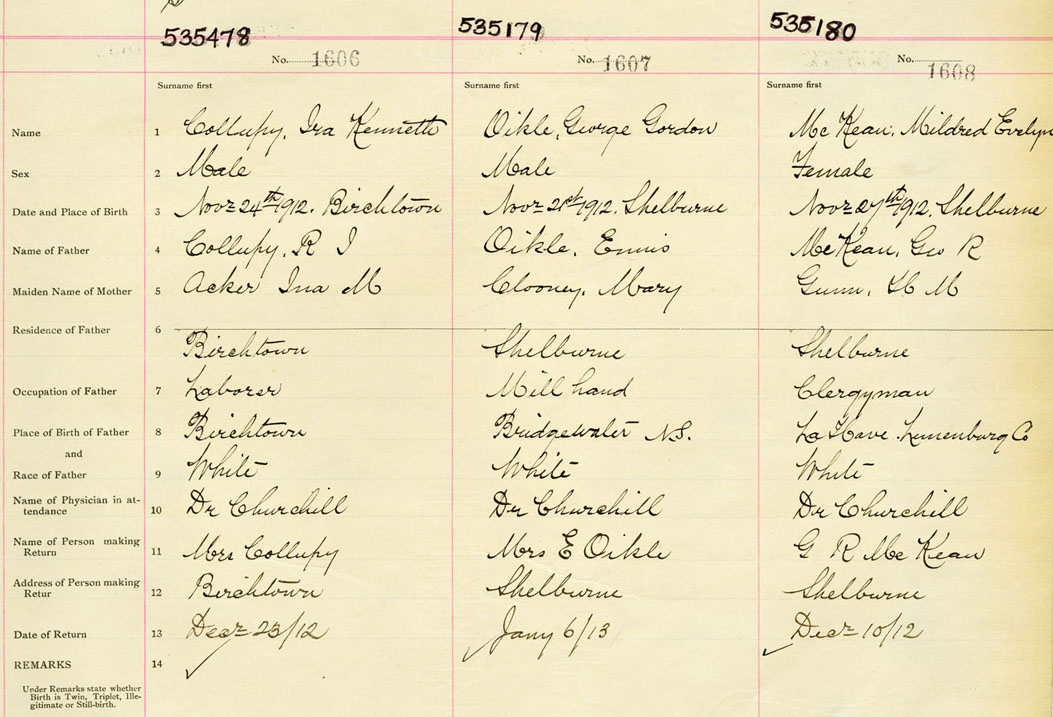 535478 535179 535180
No. 1606 No. 1607 No. 1608
Surname first Surname first Surname first
Name 1 Collupy, Ira Kenneth Oikle, George Gordon McKean, Mildred Evelyn
Sex 2 Male Male Female
Date and Place of Birth 3 Novr 24th 1912. Birchtown Novr 21st 1912. Shelburne Novr 27th 1912. Shelburne
Name of Father 4 Collupy, R I Oikle, Ennis McKean, Geo R
Maiden Name of Mother 5 Acker Ina M Clooney, Mary Gunn, H M
Residence of Father 6
Birchtown Shelburne Shelburne
Occupation of Father 7 Laborer Mill hand Clergyman
Place of Birth of Father 8 Birchtown Bridgewater N.S. La Have. Lunenburg Co
and
Race of Father 9 White White White
Name of Physician in at-
tendance 10 Dr Churchill Dr Churchill Dr Churchill
Name of Person making
Return 11 Mrs Collupy Mrs E Oikle G R McKean
Address of Person making
Retur 12 Birchtown Shelburne Shelburne
Date of Return 13 Decr 23/12 Jany 6/13 Decr 10/12
REMARKS 14
Under Remarks state whether
Birth is Twin, Triplet, Ille-
gitimate or Still-birth.